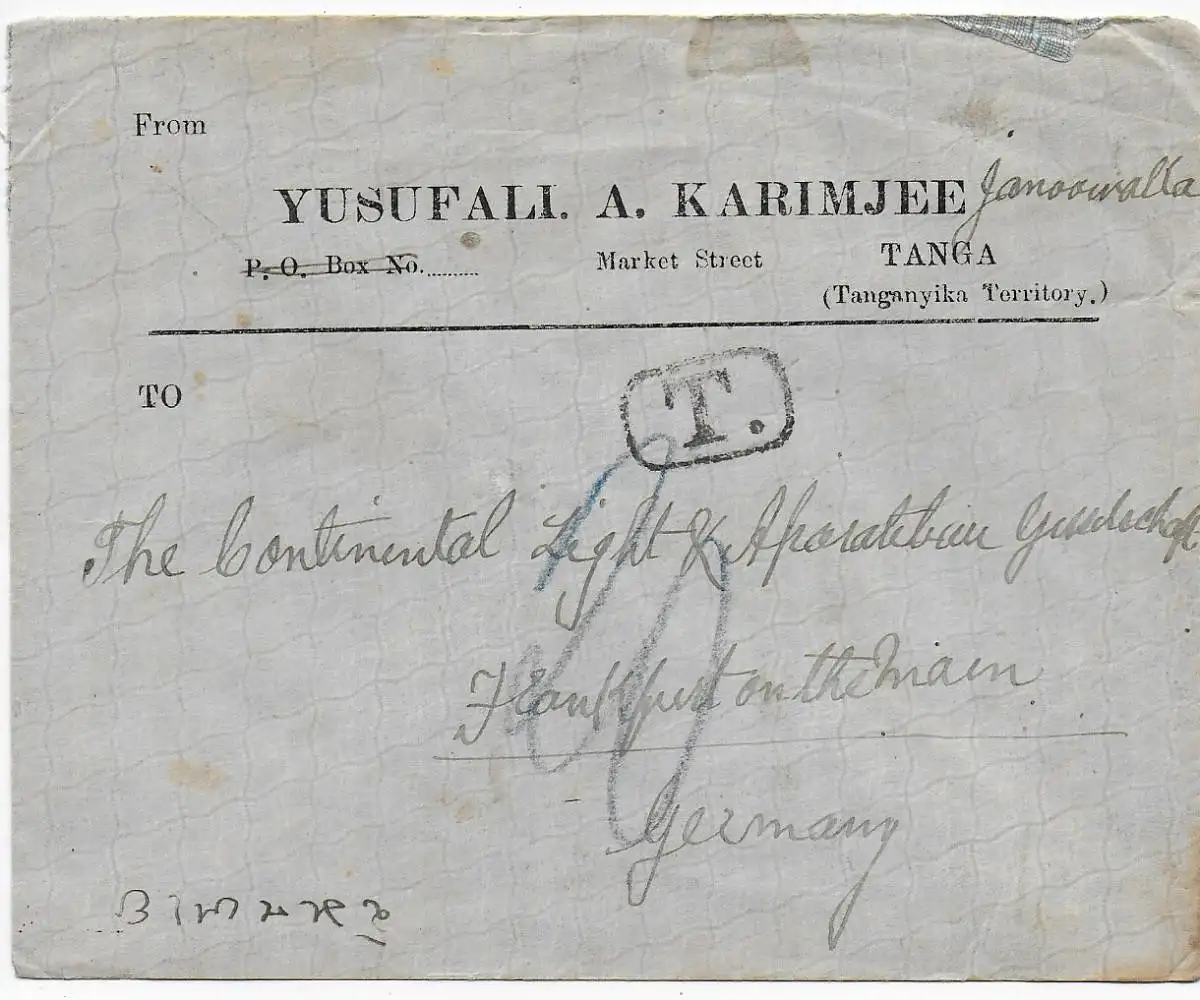 From
YUSUFALI. A. KARIMJEE Janoowalla
P. O. Box No. Market Street TANGA
(Tanganyika Territory.)
TO
T.
The Continental Light & Aparatebau Gesellschaft
Frankfurt on the Main
Germany